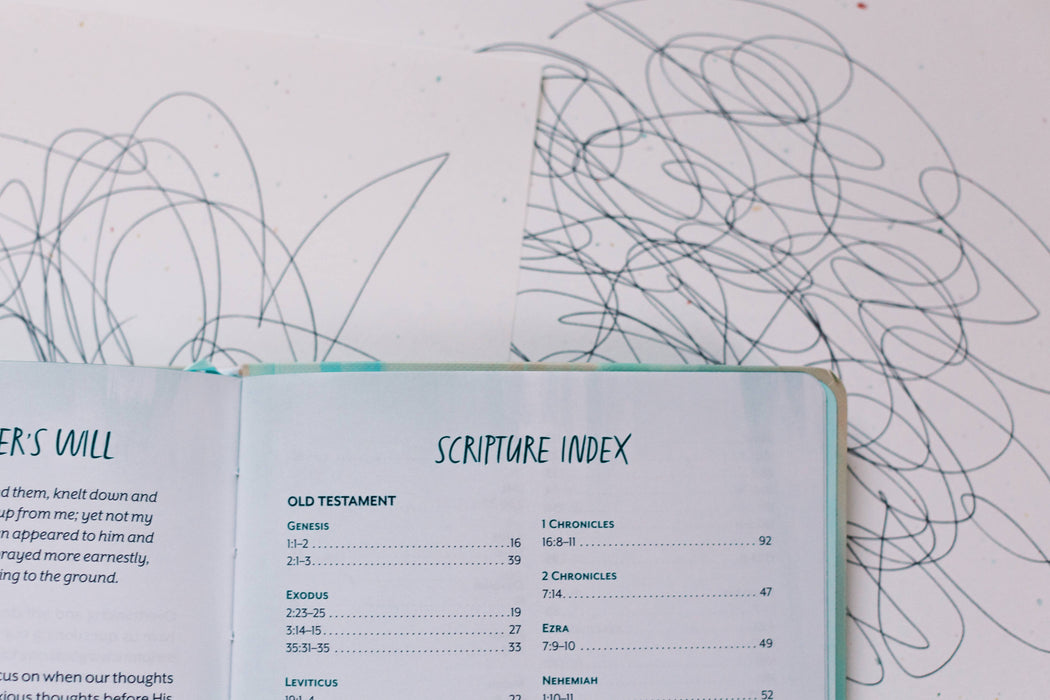 ER'S WILL
d them, knelt down and
up from me; yet not my
n appeared to him and
rayed more earnestly,
ing to the ground.
cus on when our thoughts
xious thoughts before His
SCRIPTURE INDEX
OLD TESTAMENT
GENESIS
1:1–2 16
2:1–3 39
EXODUS
2:23–25 19
3:14–15 27
35:31–35 33
LEVITICUS
19:1–4 22
1 CHRONICLES
16:8–11 92
2 CHRONICLES
7:14 47
EZRA
7:9–10 49
NEHEMIAH
1:10–11 52